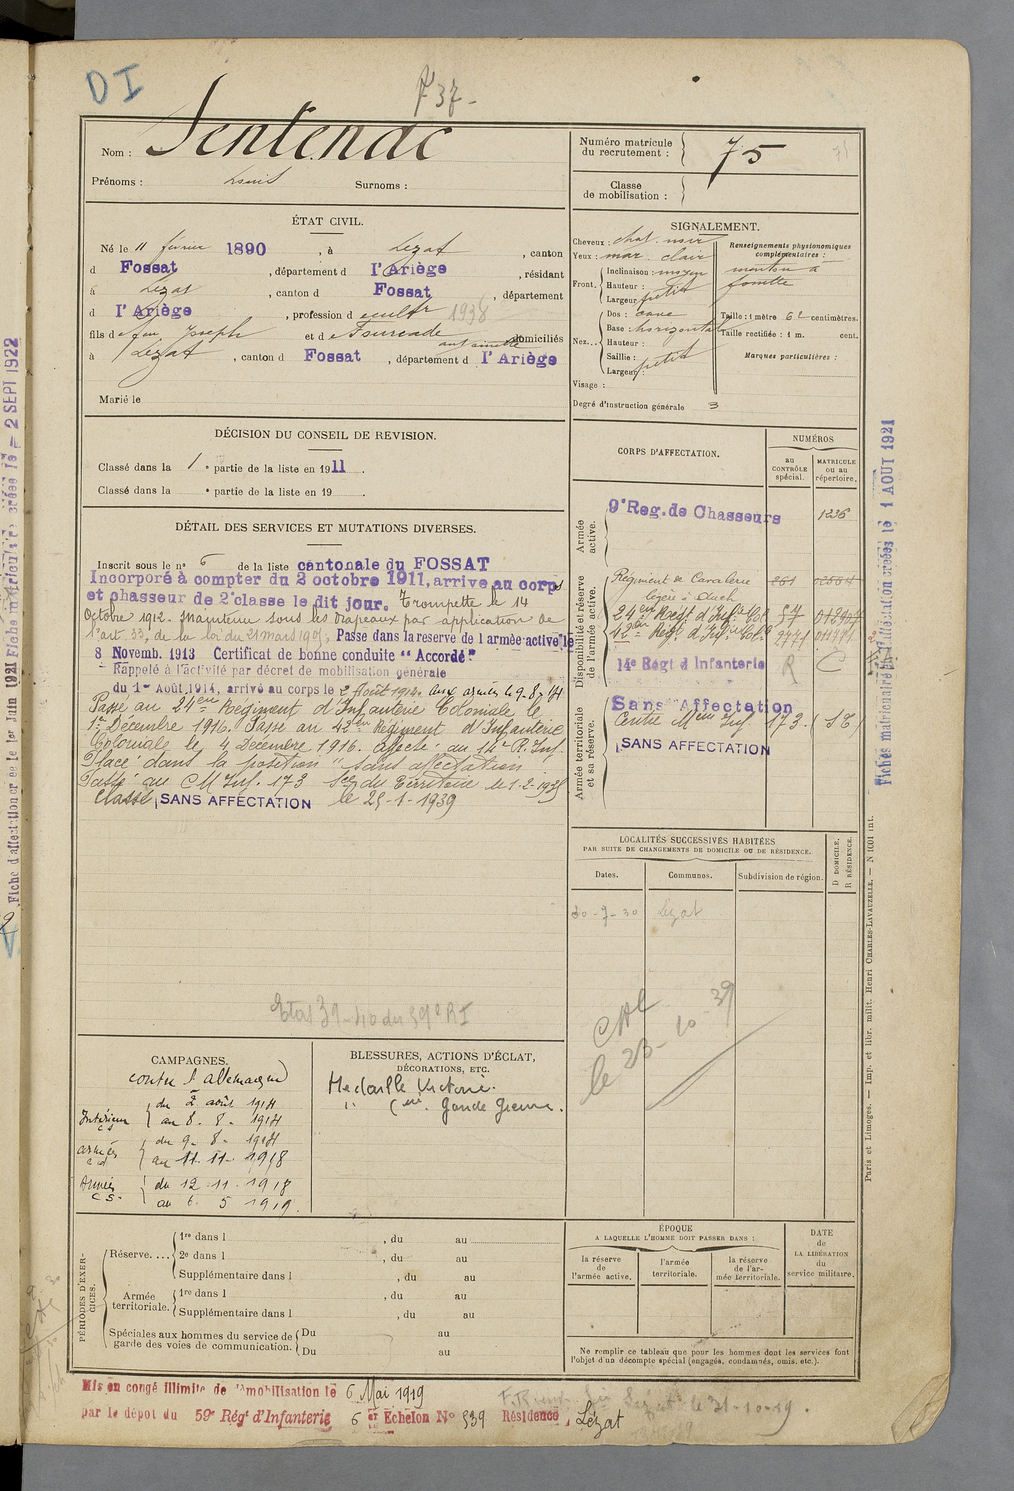 DI
F 37-
Nom : Sentenac
Prénoms : Louis Surnoms :
Numéro matricule du recrutement : 75
Classe de mobilisation :
ÉTAT CIVIL.
Né le 11 février 1890, à Lézat, canton
d Fossat, département d l'Ariège, résidant
à Lézat, canton d Fossat, département
d l'Ariège, profession d cultr 1938
fils de feu Joseph et de Fourcade antoinette domiciliés
à Lézat, canton d Fossat, département d l'Ariège
Marié le
SIGNALEMENT.
Cheveux : chat. noir
Yeux : mar. clair
Front. Inclinaison : moyen
Hauteur :
Largeur petit
Nez... Dos : cave
Base : horizontal
Hauteur :
Saillie : petit
Largeur :
Visage :
Degré d'instruction générale 3
Renseignements physionomiques complémentaires :
menton à
fossette
Taille : 1 mètre 62 centimètres.
Taille rectifiée : 1 m. cent.
Marques particulières :
DÉCISION DU CONSEIL DE REVISION.
Classé dans la 1e partie de la liste en 1911.
Classé dans la e partie de la liste en 19
DÉTAIL DES SERVICES ET MUTATIONS DIVERSES.
Inscrit sous le n° 6 de la liste cantonale du FOSSAT
Incorporé à compter du 2 octobre 1911, arrive au corps
et chasseur de 2e classe le dit jour. Trompette le 14
Octobre 1912. Maintenu sous les drapeaux par application de
l'art. 33, de la loi du 21 mars 1905, Passe dans la reserve de l armée active le
8 Novemb. 1913 Certificat de bonne conduite "Accordé"
Rappelé à l'activité par décret de mobilisation générale
du 1er Août 1914, arrivé au corps le 2 Août 1914. Aux armées le 9.8.14
Passé au 24en Régiment d'Infanterie Coloniale le
1er Décembre 1916. Passé au 42en Régiment d'Infanterie
Coloniale le 4 Décembre 1916. Affecté au 14e R. Inf.
Placé dans la position "sans affectation"
Passé au C M Inf. 173 Son du Territoire le 1-2-1925
Classé SANS AFFECTATION le 25-1-1939
CORPS D'AFFECTATION.
NUMÉROS
au CONTRÔLE spécial.
MATRICULE ou au répertoire.
Armée active.
9e Reg. de Chasseurs 1236
Disponibilité et réserve de l'armée active.
Régiment de Cavalerie
légère à Auch
24en Regt d'Infie Cole 57
42en Regt d'Infie Cole 2771
14e Régt d Infanterie R C
Armée territoriale et sa réserve.
Sans Affectation
Centre Mem Inf. 173.
SANS AFFECTATION
LOCALITÉS SUCCESSIVES HABITÉES
PAR SUITE DE CHANGEMENTS DE DOMICILE OU DE RÉSIDENCE.
Dates. Communes. Subdivision de région.
D DOMICILE. R RÉSIDENCE.
20-9-30 Lézat
CAL
le 23-10-39
Etat 39-40 du 59e RI
CAMPAGNES.
contre l'allemagne
Intérieur CS du 2 août 1914
au 8. 8. 1914
armées CD du 9. 8. 1914
au 11. 11. 1918
Armées CS. du 12. 11. 1918
au 6. 5 1919.
BLESSURES, ACTIONS D'ÉCLAT,
DÉCORATIONS, ETC.
Medaille Victoire.
" Cem. Grande Guerre.
PÉRIODES D'EXERCICES.
Réserve.... 1re dans l , du au
2e dans l , du au
Supplémentaire dans l , du au
Armée territoriale. 1re dans l , du au
Supplémentaire dans l , du au
Spéciales aux hommes du service de garde des voies de communication. Du au
Du au
ÉPOQUE
A LAQUELLE L'HOMME DOIT PASSER DANS :
la réserve de l'armée active.
l'armée territoriale.
la réserve de l'armée territoriale.
DATE de LA LIBÉRATION du service militaire.
Ne remplir ce tableau que pour les hommes dont les services font l'objet d'un décompte spécial (engagés, condamnés, omis, etc.).
Mis en congé illimité de démobilisation le 6 Mai 1919
par le dépôt du 59e Régt d'Infanterie 6er Echelon N° 539 Résidence, Lézat
le 31-10-19.
Paris et Limoges. — Imp. et libr. milit. Henri CHARLES-LAVAUZELLE. — N 1001 int.
Fiches matricule et d'affectation créées le 1 AOUT 1921
Fiche d'affectation créée le 1er Juin 1921 Fiche matricule créée le 2 SEPT 1922